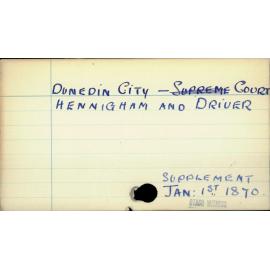 DUNEDIN CITY – SUPREME COURT
HENNIGHAM AND DRIVER
SUPPLEMENT
JAN: 1ST 1870.
OTAGO WITNESS